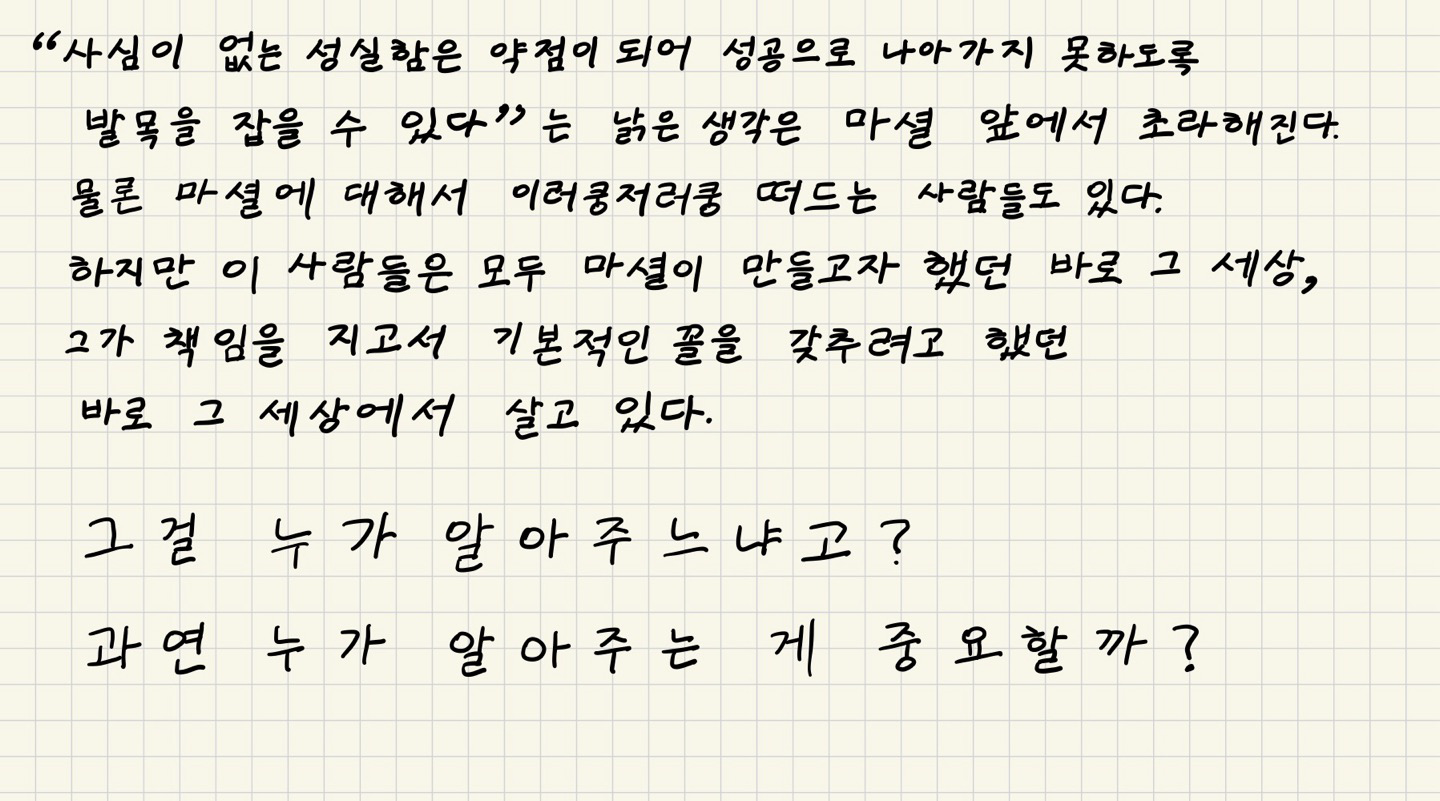 “사심이 없는 성실함은 약점이 되어 성공으로 나아가지 못하도록
발목을 잡을 수 있다”는 낡은 생각은 마셜 앞에서 초라해진다.
물론 마셜에 대해서 이러쿵저러쿵 떠드는 사람들도 있다.
하지만 이 사람들은 모두 마셜이 만들고자 했던 바로 그 세상,
그가 책임을 지고서 기본적인 꼴을 갖추려고 했던
바로 그 세상에서 살고 있다.
그걸 누가 알아주느냐고?
과연 누가 알아주는 게 중요할까?